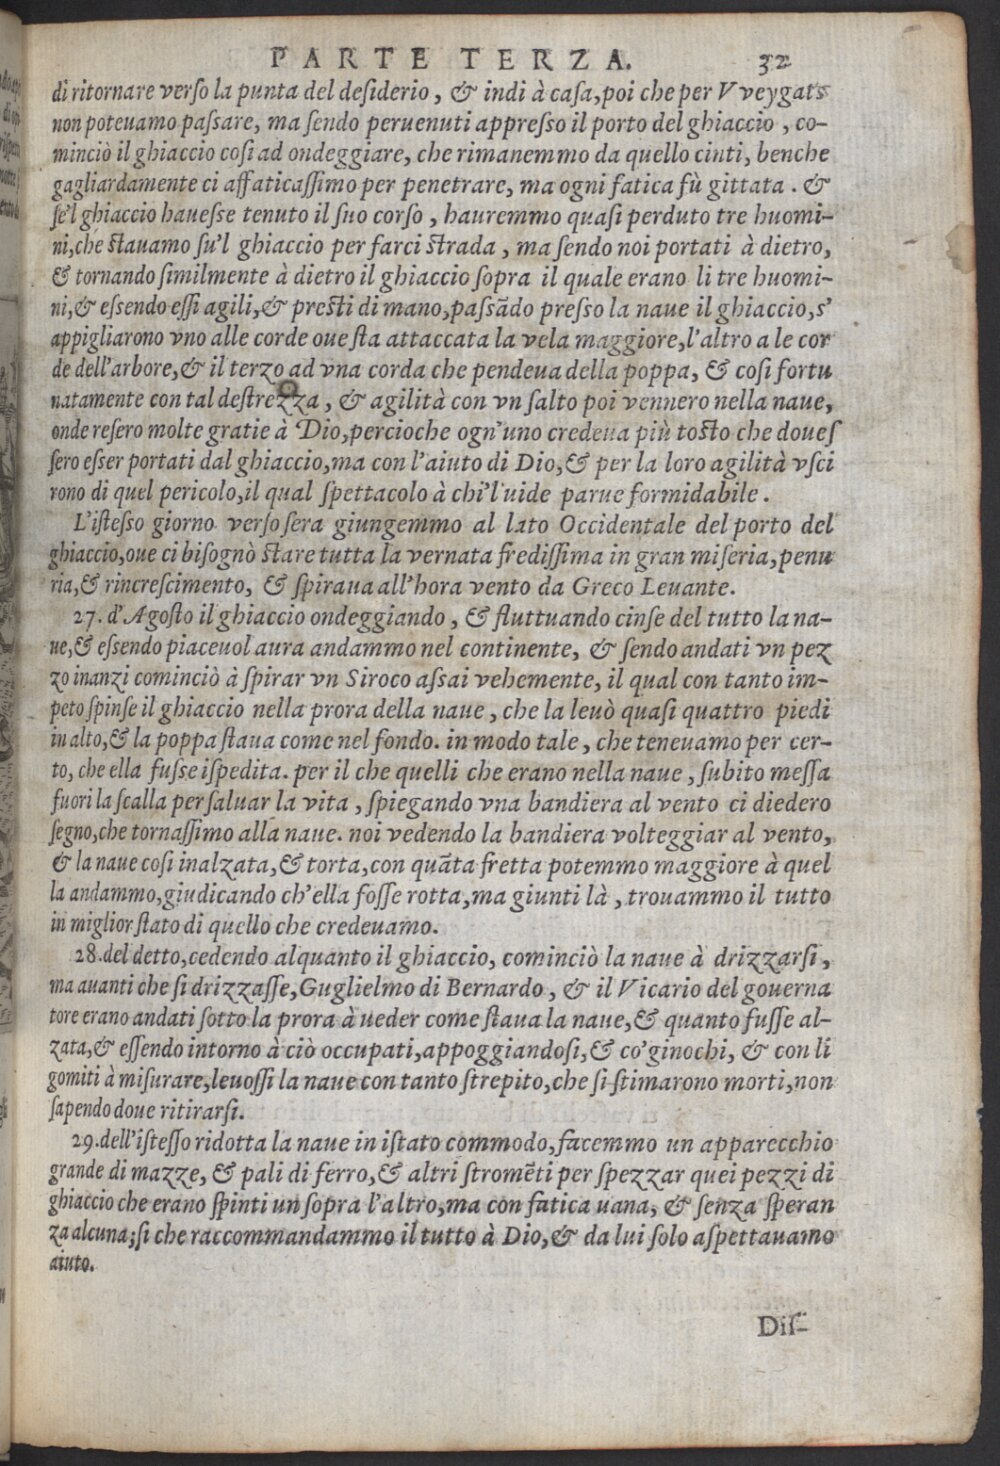 PARTE TERZA. 32
di ritornare verſo la punta del deſiderio, & indi à caſa, poi che per Vveygats
non poteuamo paſsare, ma ſendo peruenuti appreſso il porto del ghiaccio, co-
minciò il ghiaccio coſi ad ondeggiare, che rimanemmo da quello cinti, benche
gagliardamente ci affaticaſſimo per penetrare, ma ogni fatica fù gittata. &
ſe'l ghiaccio haueſse tenuto il ſuo corſo, hauremmo quaſi perduto tre huomi-
ni, che ſtauamo ſu'l ghiaccio per farci ſtrada, ma ſendo noi portati à dietro,
& tornando ſimilmente à dietro il ghiaccio ſopra il quale erano li tre huomi-
ni, & eſsendo eſſi agili, & preſti di mano, paſsãdo preſso la naue il ghiaccio, s'
appigliarono vno alle corde oue ſta attaccata la vela maggiore, l'altro a le cor
de dell'arbore, & il terzo ad vna corda che pendeua della poppa, & coſi fortu
natamente con tal deſtrezza, & agilità con vn ſalto poi vennero nella naue,
onde reſero molte gratie à Dio, percioche ogn'uno credeua più toſto che doueſ
ſero eſser portati dal ghiaccio, ma con l'aiuto di Dio, & per la loro agilità vſci
rono di quel pericolo, il qual ſpettacolo à chi'l uide parue formidabile.
L'iſteſso giorno verſo ſera giungemmo al lato Occidentale del porto del
ghiaccio, oue ci biſognò ſtare tutta la vernata frediſſima in gran miſeria, penu
ria, & rincreſcimento, & ſpiraua all'hora vento da Greco Leuante.
27. d'Agoſto il ghiaccio ondeggiando, & fluttuando cinſe del tutto la na-
ue, & eſsendo piaceuol aura andammo nel continente, & ſendo andati vn pez
zo inanzi cominciò à ſpirar vn Siroco aſsai vehemente, il qual con tanto im-
peto ſpinſe il ghiaccio nella prora della naue, che la leuò quaſi quattro piedi
in alto, & la poppa ſtaua come nel fondo. in modo tale, che teneuamo per cer-
to, che ella fuſse iſpedita. per il che quelli che erano nella naue, ſubito meſſa
fuori la ſcalla per ſaluar la vita, ſpiegando vna bandiera al vento ci diedero
ſegno, che tornaſſimo alla naue. noi vedendo la bandiera volteggiar al vento,
& la naue coſi inalzata, & torta, con quãta fretta potemmo maggiore à quel
la andammo, giudicando ch'ella foſse rotta, ma giunti là, trouammo il tutto
in miglior ſtato di quello che credeuamo.
28. del detto, cedendo alquanto il ghiaccio, cominciò la naue à drizzarſi,
ma auanti che ſi drizzaſſe, Guglielmo di Bernardo, & il Vicario del gouerna
tore erano andati ſotto la prora à ueder come ſtaua la naue, & quanto fuſſe al-
zata, & eſſendo intorno à ciò occupati, appoggiandoſi, & co'ginochi, & con li
gomiti à miſurare, leuoſſi la naue con tanto ſtrepito, che ſi ſtimarono morti, non
ſapendo doue ritirarſi.
29. dell'iſteſſo ridotta la naue in iſtato commodo, facemmo un apparecchio
grande di mazze, & pali di ferro, & altri ſtromẽti per ſpezzar quei pezzi di
ghiaccio che erano ſpinti un ſopra l'altro, ma con fatica uana, & ſenza ſperan
za alcuna; ſi che raccommandammo il tutto à Dio, & da lui ſolo aſpettauamo
aiuto.
Diſ-